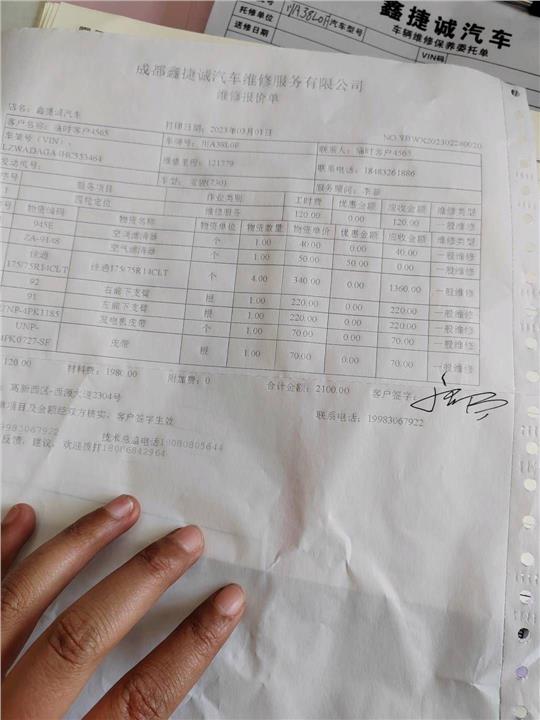 鑫捷诚汽车
车辆维修保养委托单
托修单位
汽车型号
送修日期
VIN码
成都鑫捷诚汽车维修服务有限公司
维修报价单
店名：鑫捷诚汽车
打印日期：2023年03月01日
客户名称：临时客户4565
车牌号：川A38L0F
联系人：临时客户4565
车架号(VIN):
维修里程：121379
联系电话：18483261886
发动机号：
服务顾问：李磊
服务项目 作业类别 工时费 优惠金额 应收金额 维修类型
四轮定位 维修服务 120.00 0.00 120.00 一般维修
物资编码 物资名称 物资单位 物资数量 物资单价 优惠金额 应收金额 维修类型
945E 空调滤清器 个 1.00 40.00 0.00 40.00 一般维修
ZA-9148 空气滤清器 个 1.00 50.00 50.00 0.00 一般维修
佳通175/75R14CLT 佳通175/75R14CLT 个 4.00 340.00 0.00 1360.00 一般维修
92 右前下支臂 根 1.00 220.00 0.00 220.00 一般维修
91 左前下支臂 根 1.00 220.00 0.00 220.00 一般维修
UNP-4PK1185 发电机皮带 个 1.00 70.00 0.00 70.00 一般维修
UNP-4PK0727-SF 皮带 根 1.00 70.00 0.00 70.00 一般维修
120.00 材料费：1980.00 附加费：0 合计金额：2100.00 客户签字：
高新西区-西源大道2304号
联系电话：19983067922
项目及金额经双方核实，客户签字生效
19983067922 技术总监电话18080805644
反馈，建议，欢迎拨打18086842964